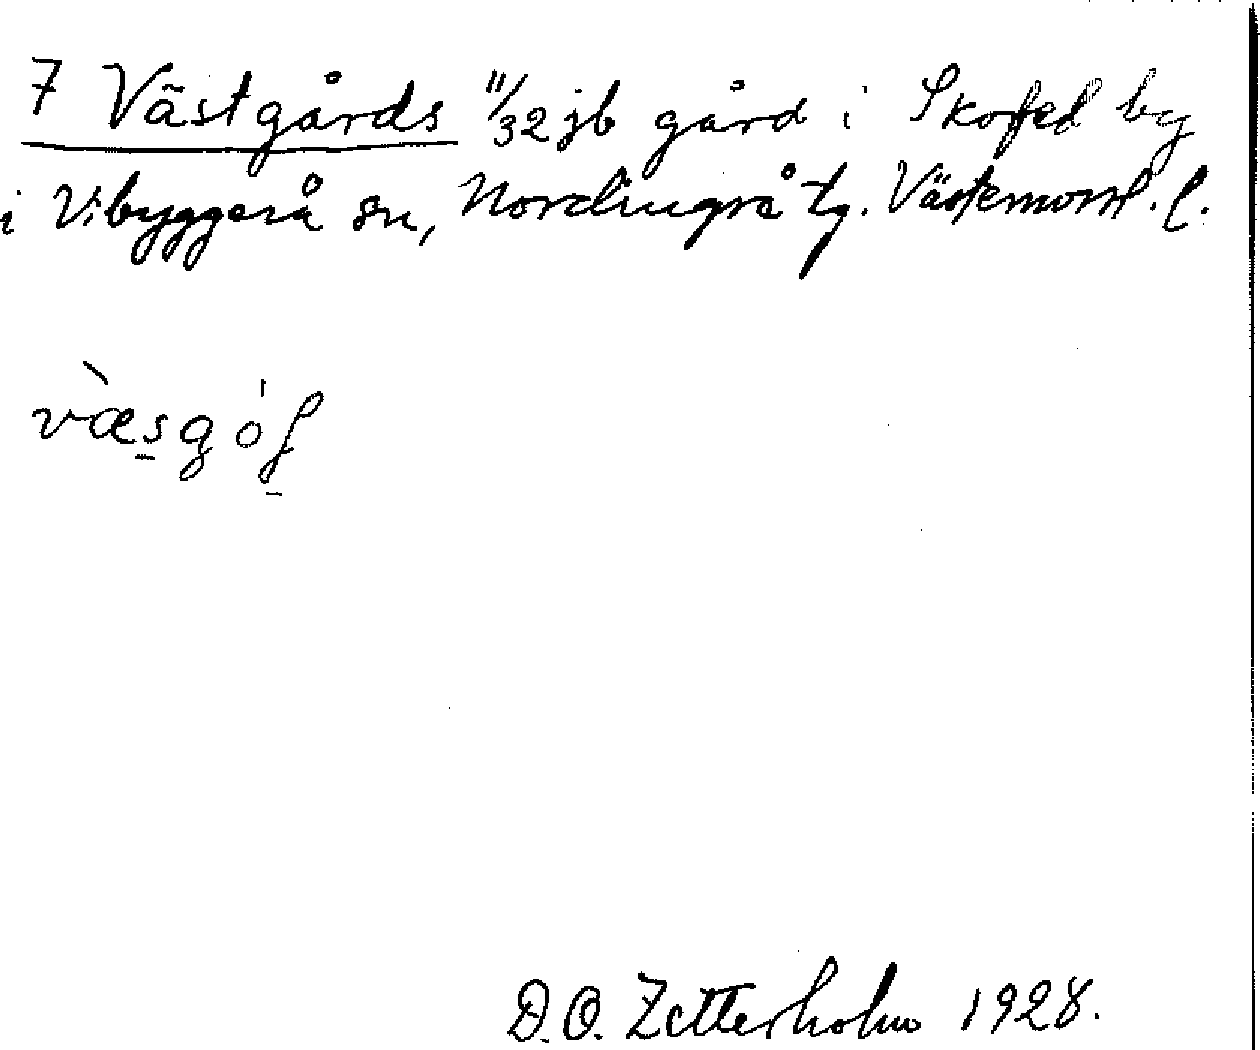 7 Västgårds 11/32 jb gård i Skoved by
i Vibyggerå sn, Nordingrå tg. Västernorrl. l.
D.O. Zetterholm 1928.